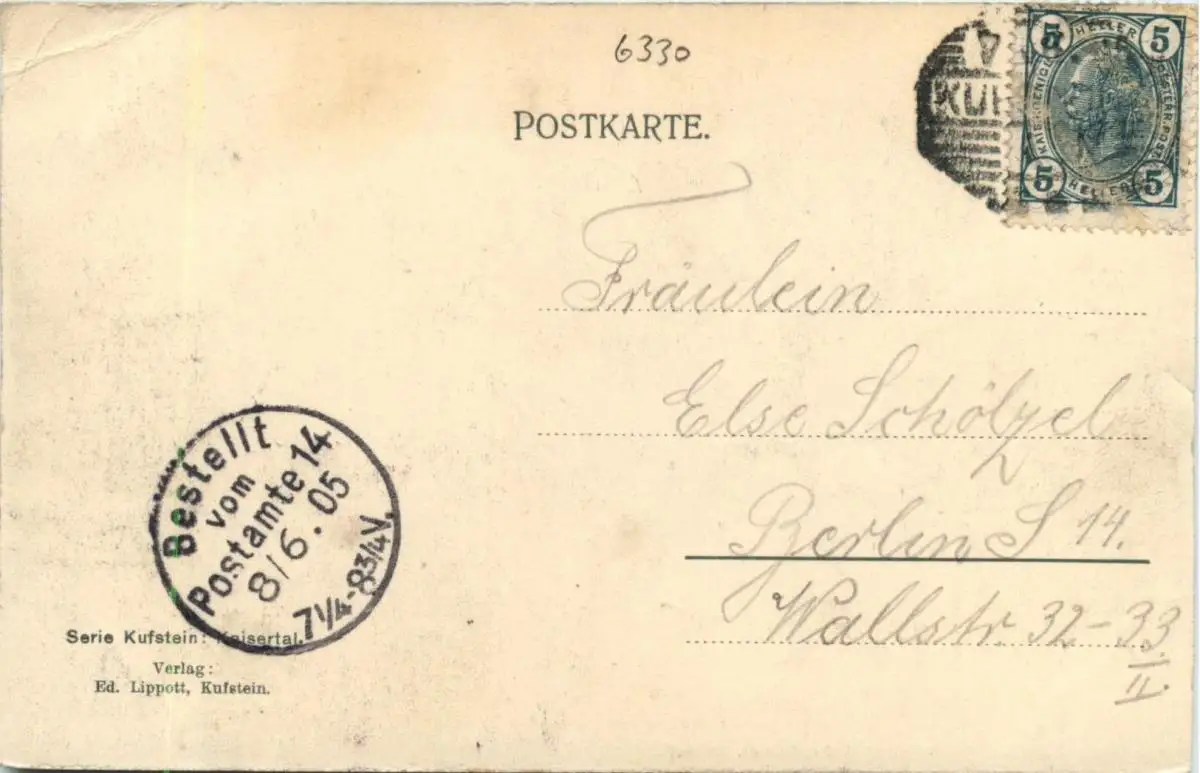 6330
POSTKARTE.
5 HELLER 5
KAIS. KOENIGL. OESTERR. POST
5 HELLER 5
Fräulein
Else Schölzel
Berlin S 14.
Wallstr. 32-33
II.
Bestellt
vom
Postamte 14
8/6.05
7¼-8¾V.
Serie Kufstein: Kaisertal.
Verlag:
Ed. Lippott, Kufstein.